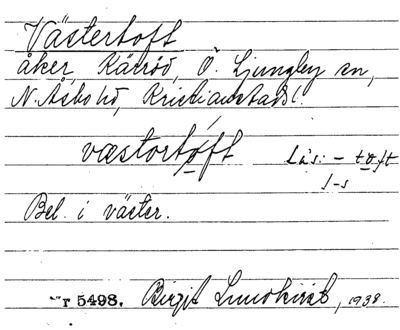 Västertoft
åker, Kärröd, Ö. Ljungby sn,
N. Åsbo hd, Kristianstads l.
væstortoft Läs: – toft
1-s
Bel. i väster.
Nr 5498. Birgit Lundkvist, 1938.